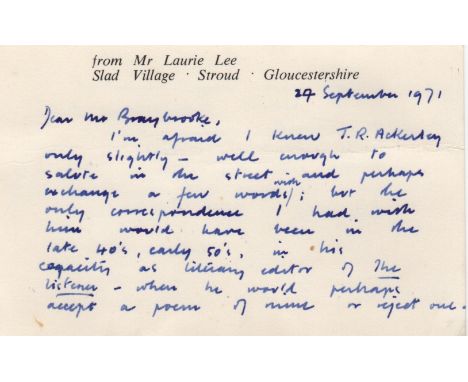 from Mr Laurie Lee
Slad Village · Stroud · Gloucestershire
27 September 1971
Dear Mr Braybrooke,
I'm afraid I knew J.R. Ackerley
only slightly – well enough to
salute in the street and perhaps
exchange a few words with); but the
only correspondence I had with
him would have been in the
late 40's, early 50's, in his
capacity as literary editor of The
Listener – when he would perhaps
accept a poem of mine or reject one.